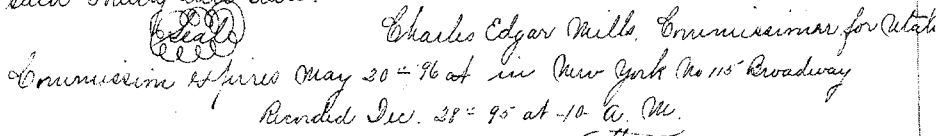 Seal
Charles Edgar Mills, Commissioner for Utah
Commission Expires May 20- 96 at in New York No 115 Broadway
Recorded Dec. 28- 95 at -10- A. M.